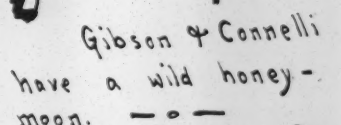 Gibson & Connelli
have a wild honey-
moon. — o —